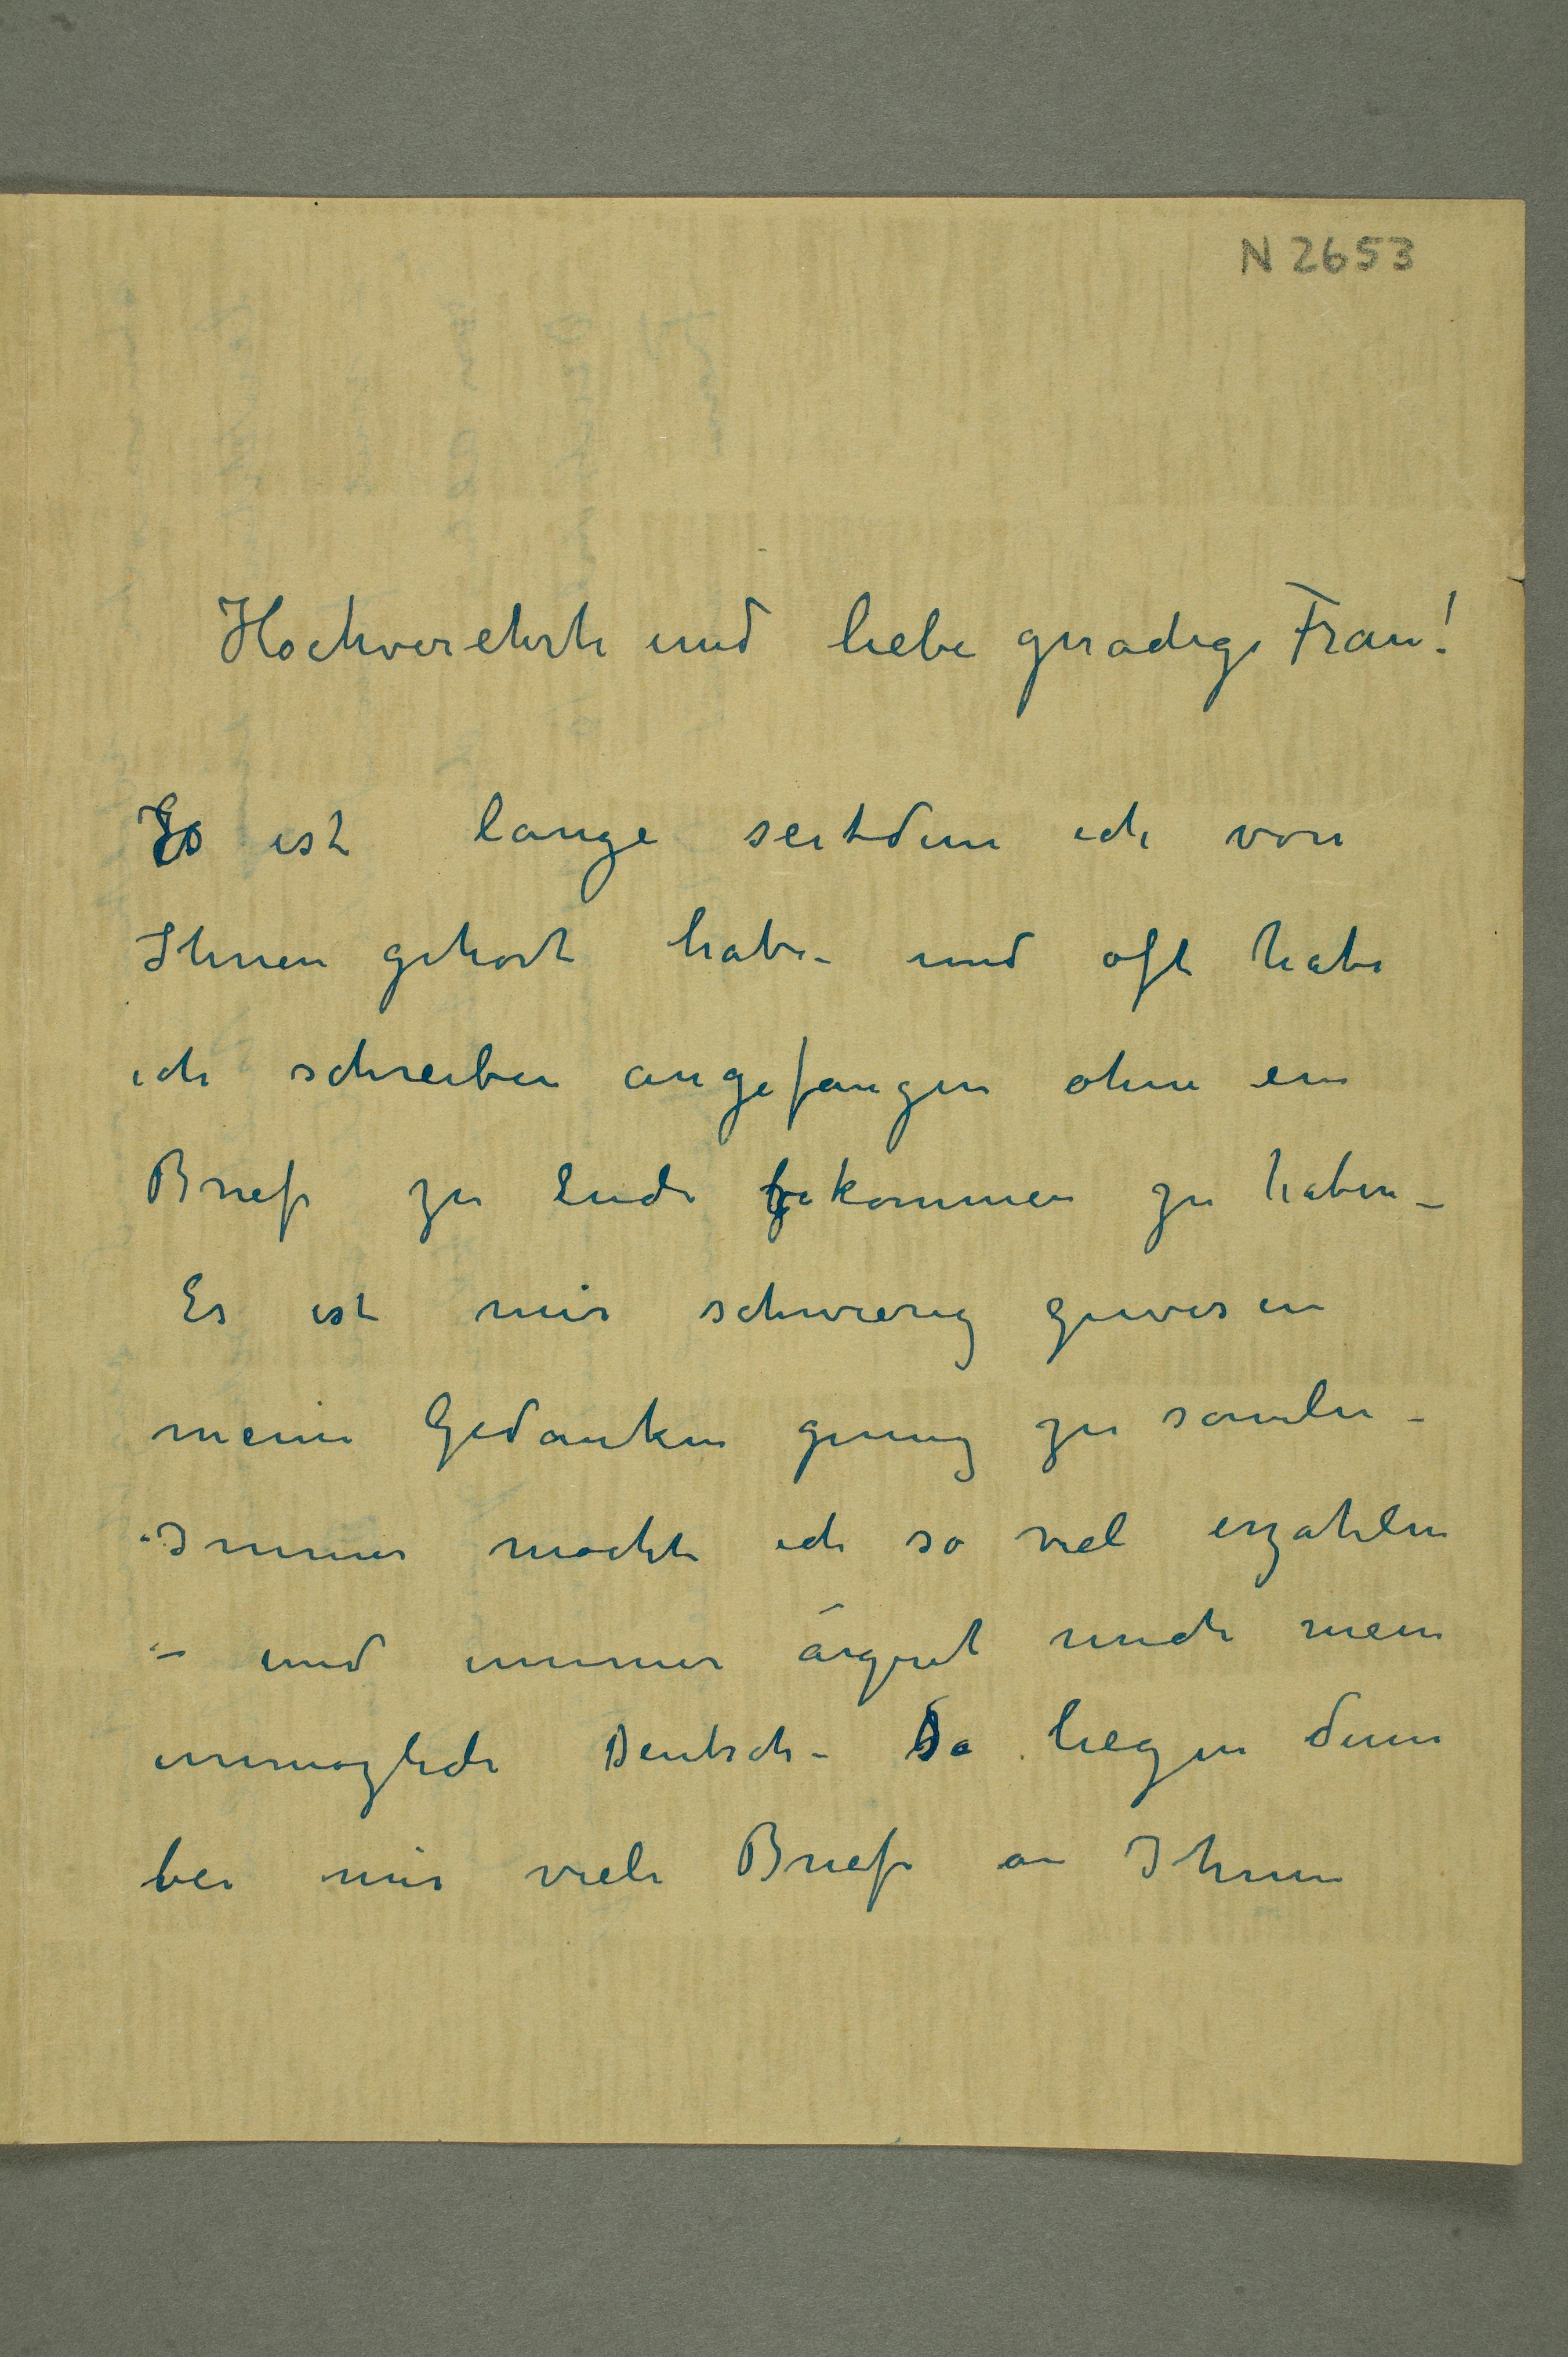 N 2653
Hochverehrte und liebe gnadige Frau!
Es ist lange seitdem ich von
Ihnen gehort habe – und oft habe
ich schreiben angefangen ohne ein
Brief zu Ende bekommen zu haben –
Es ist mir schwierig gewesen
meine Gedanken genug zu sameln –
Immer mochte ich so viel erzahlen
– und immer ärgert mich mein
unmogliche Deutsch – Da liegen denn
bei mir viele Briefe an Ihnen